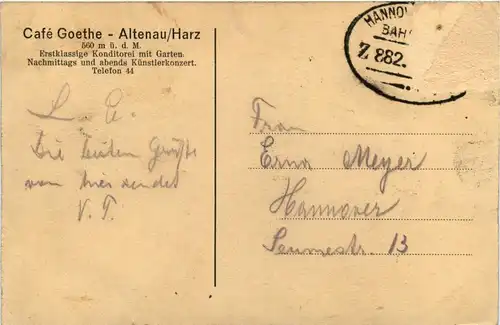 Café Goethe - Altenau/Harz
560 m ü. d. M.
Erstklassige Konditorei mit Garten.
Nachmittags und abends Künstlerkonzert.
Telefon 44
L. E.
Die Grüße
von hier sendet
V. T.
HANNO
BAH
Z 882.
Frau
Erna Meyer
Hannover
Seumestr. 13